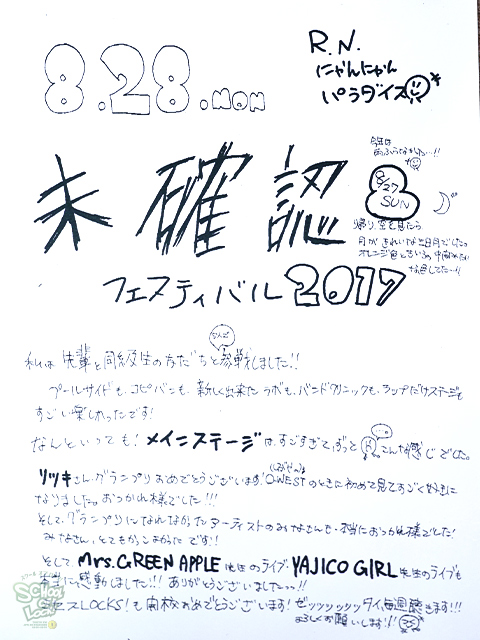 8.28.MON
R.N.
にゃんにゃん
パラダイス
未確認
フェスティバル2017
今年は
雨ふらなかった…!!
8/27
SUN
帰り、空を見たら
月がきれいな三日月でした。
私は先輩と同級生の友だちと参戦しました!!
プールサイドも、コピバンも、新しく出来たラボも、バンドクリニックも、ラップだけステージも
すごい楽しかったです!
なんといっても!メインステージは、すごすぎてずっとこんな感じでした。
リツキさん、グランプリおめでとうございます!O-WESTのときに初めて見てすごく好きに
なりました。おつかれ様でした!!!
そして、グランプリになれなかったアーティストのみなさんも、本当におつかれ様でした!
みなさん、とてもかっこよかったです!!
そして、Mrs.GREEN APPLE先生のライブ、YAJICO GIRL先生のライブも
本当に感動しました!!!ありがとうございました!!
LOCKS!も開校おめでとうございます!ゼッッッッッタイ、毎週聴きます!!!
よろしくお願いします!!
SCHOOL OF LOCK!